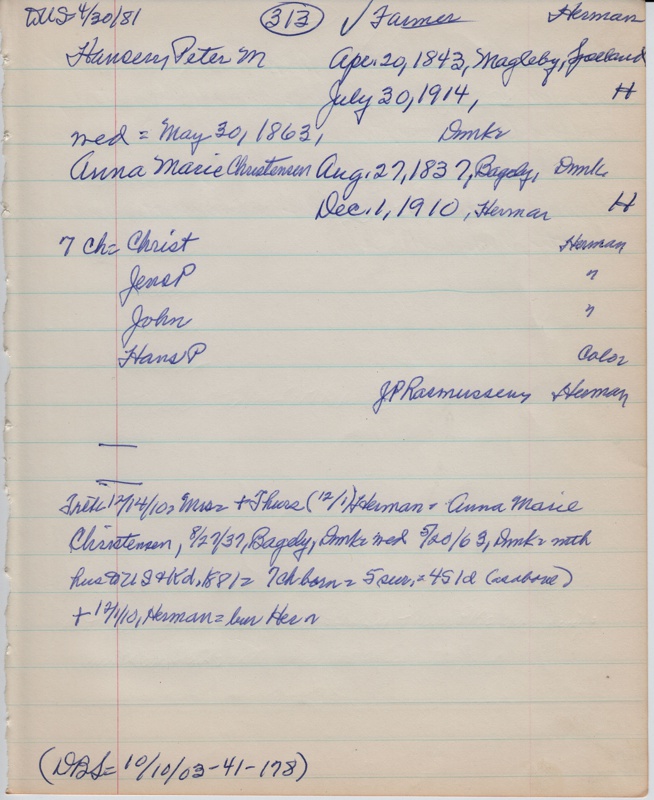 DUS=4/30/81 313 ✓ Farmer Herman
Hansen, Peter M Apr. 20, 1843, Magleby, Sjaelland
July 30, 1914, H
wed = May 30, 1863, Dmk=
Anna Marie Christensen Aug. 27, 1837, Bagely, Dmk.
Dec. 1, 1910, Herman H
7 ch= Christ Herman
Jens P "
John "
Hans P Color
J P Rasmussen, Herman
Tribs 12/14/10= Mrs= + Thurs (12/1) Herman = Anna Marie
Christensen, 8/27/37, Bagely, Dmk= wed 5/00/63, Dmk=
hus to US + Kd. 1881= 7 ch born = 5 sur. = 4S 1d (as above)
+ 12/1/10, Herman = bur Her
(DBS= 10/10/03-41-178)